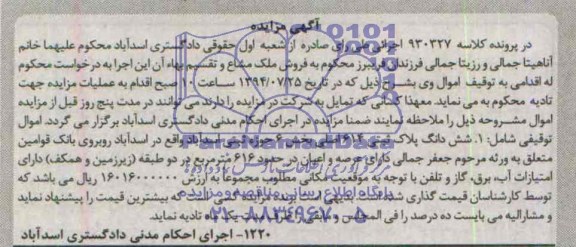 آگهی مزایده
در پرونده کلاسه ۹۳۰۳۲۷ اجرائی طی رای صادره از شعبه اول حقوقی دادگستری اسدآباد محکوم علیهما خانم
آناهیتا جمالی و رزیتا جمالی فرزندان فریبرز محکوم به فروش ملک مشاع و تقسیم بهاء آن این اجرا به درخواست محکوم
له اقدامی به توقیف اموال وی بشرح ذیل که در تاریخ ۱۳۹۴/۰۷/۲۵ ساعت ۱۰ صبح اقدام به عملیات مزایده جهت
تادیه محکوم به می نماید. معهذا کسانی که تمایل به شرکت در مزایده را دارند می توانند در مدت پنج روز قبل از مزایده
اموال مشروحه ذیل را ملاحظه نمایند ضمنا مزایده در اجرای احکام مدنی دادگستری اسدآباد برگزار می گردد. اموال
توقیفی شامل: ۱. شش دانگ پلاک ثبتی ۶۱۴ اصلی بخش ۶ حوزه ثبتی اسدآباد واقع در اسدآباد روبروی بانک قوامین
متعلق به ورثه مرحوم جعفر جمالی دارای عرصه و اعیان در حدود ۶۱۶ مترمربع در دو طبقه (زیرزمین و همکف) دارای
امتیازات آب، برق، گاز و تلفن با توجه به موقعیت مکانی مطلوب مجموعا به ارزش ۱۶۰۱۶۰۰۰۰۰۰ ریال می باشد که
توسط کارشناسان قیمت گذاری شده است. بدیهی است برنده مزایده کسی است که بیشترین قیمت را پیشنهاد نماید
و مشارالیه می بایست ده درصد را فی المجلس و مابقی را ظرف یک ماه تادیه نماید.
۱۲۲۰- اجرای احکام مدنی دادگستری اسدآباد
ParsNamadData
پایگاه اطلاع رسانی مناقصه و مزایده
۰۲۱-۸۸۳۴۹۶۷۰-۵